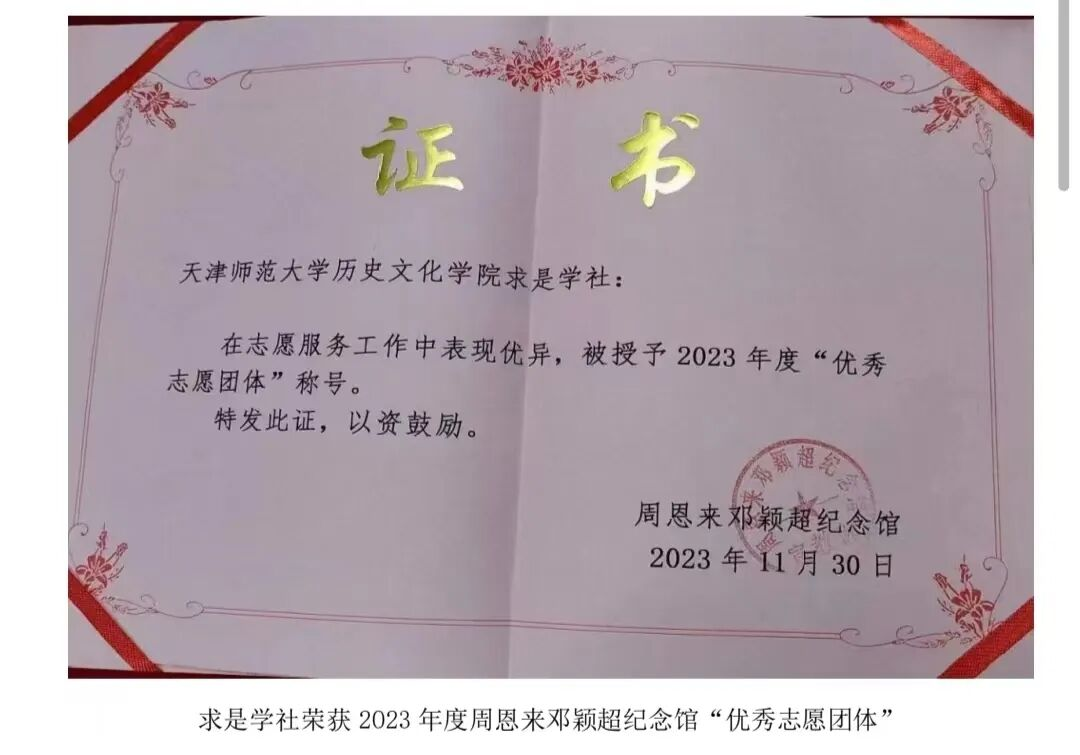 证 书
天津师范大学历史文化学院求是学社：
在志愿服务工作中表现优异，被授予 2023 年度“优秀
志愿团体”称号。
特发此证，以资鼓励。
邓颖超纪念
周恩来邓颖超纪念馆
2023 年 11 月 30 日
求是学社荣获 2023 年度周恩来邓颖超纪念馆“优秀志愿团体”